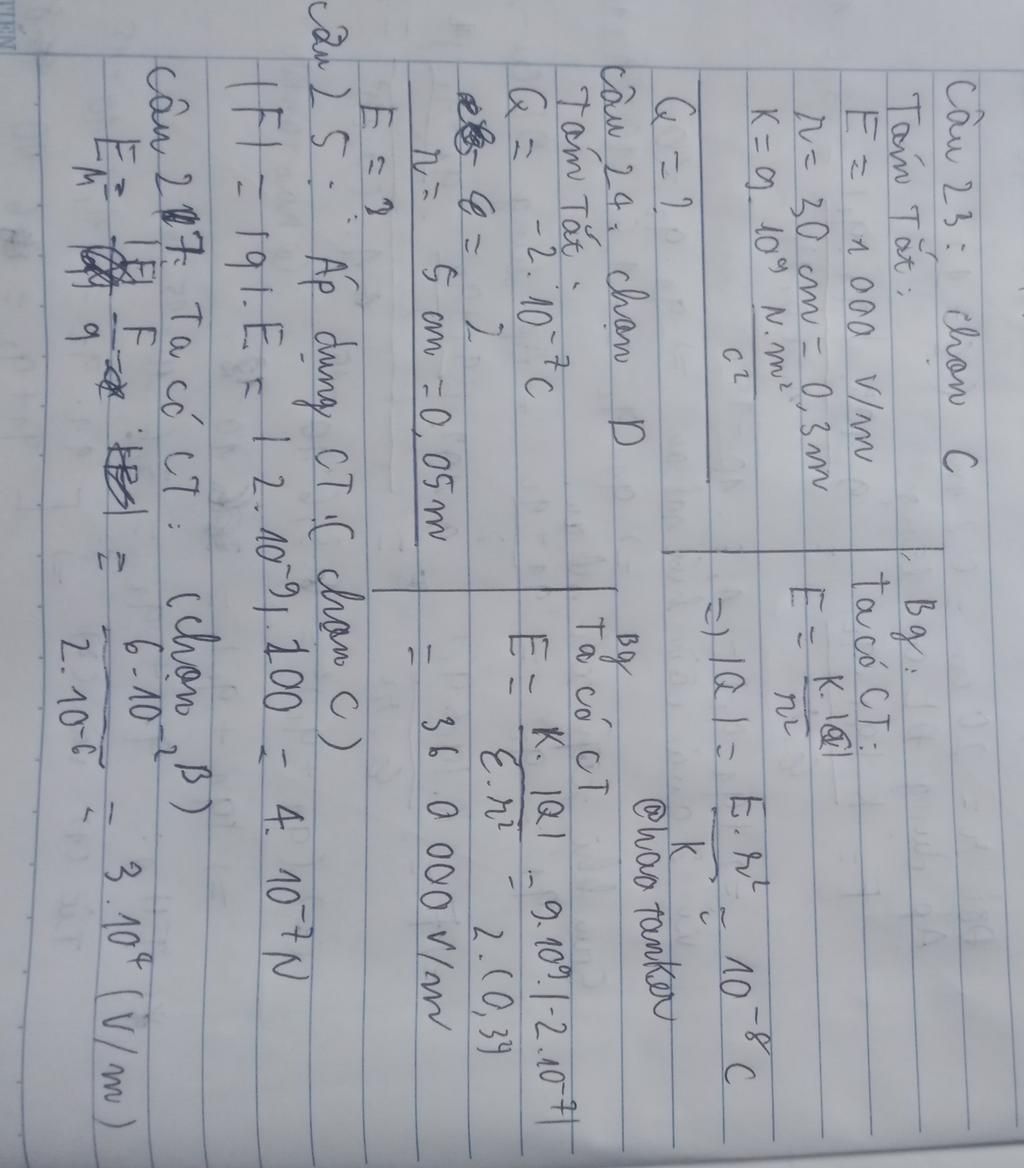 Câu 23: chọn C
Tóm Tắt:
E = 1 000 V/m
r = 30 cm = 0,3m
K = 9. 10⁹ N.m²/c²
Q = ?
Bg:
Ta có CT:
E = K.|Q|/r²
=) |Q| = E.r²/K = 10⁻⁸ C
@hao tanker
Câu 24: chọn D
Tóm Tắt:
Q = -2.10⁻⁷C
ε = 2
r = 5 cm = 0,05m
E = ?
Bg
Ta có CT
E = K.|Q|/ε.r² = 9.10⁹.|-2.10⁻⁷|/2.(0,3²)
= 36 0 000 V/m
Câu 25: Áp dụng CT (chọn C)
|F| = |q|.E = |2.10⁻⁹|.200 = 4.10⁻⁷N
Câu 27: Ta có CT: (chọn B)
E_M = F/q = 6.10⁻²/2.10⁻⁶ = 3.10⁴ (V/m)